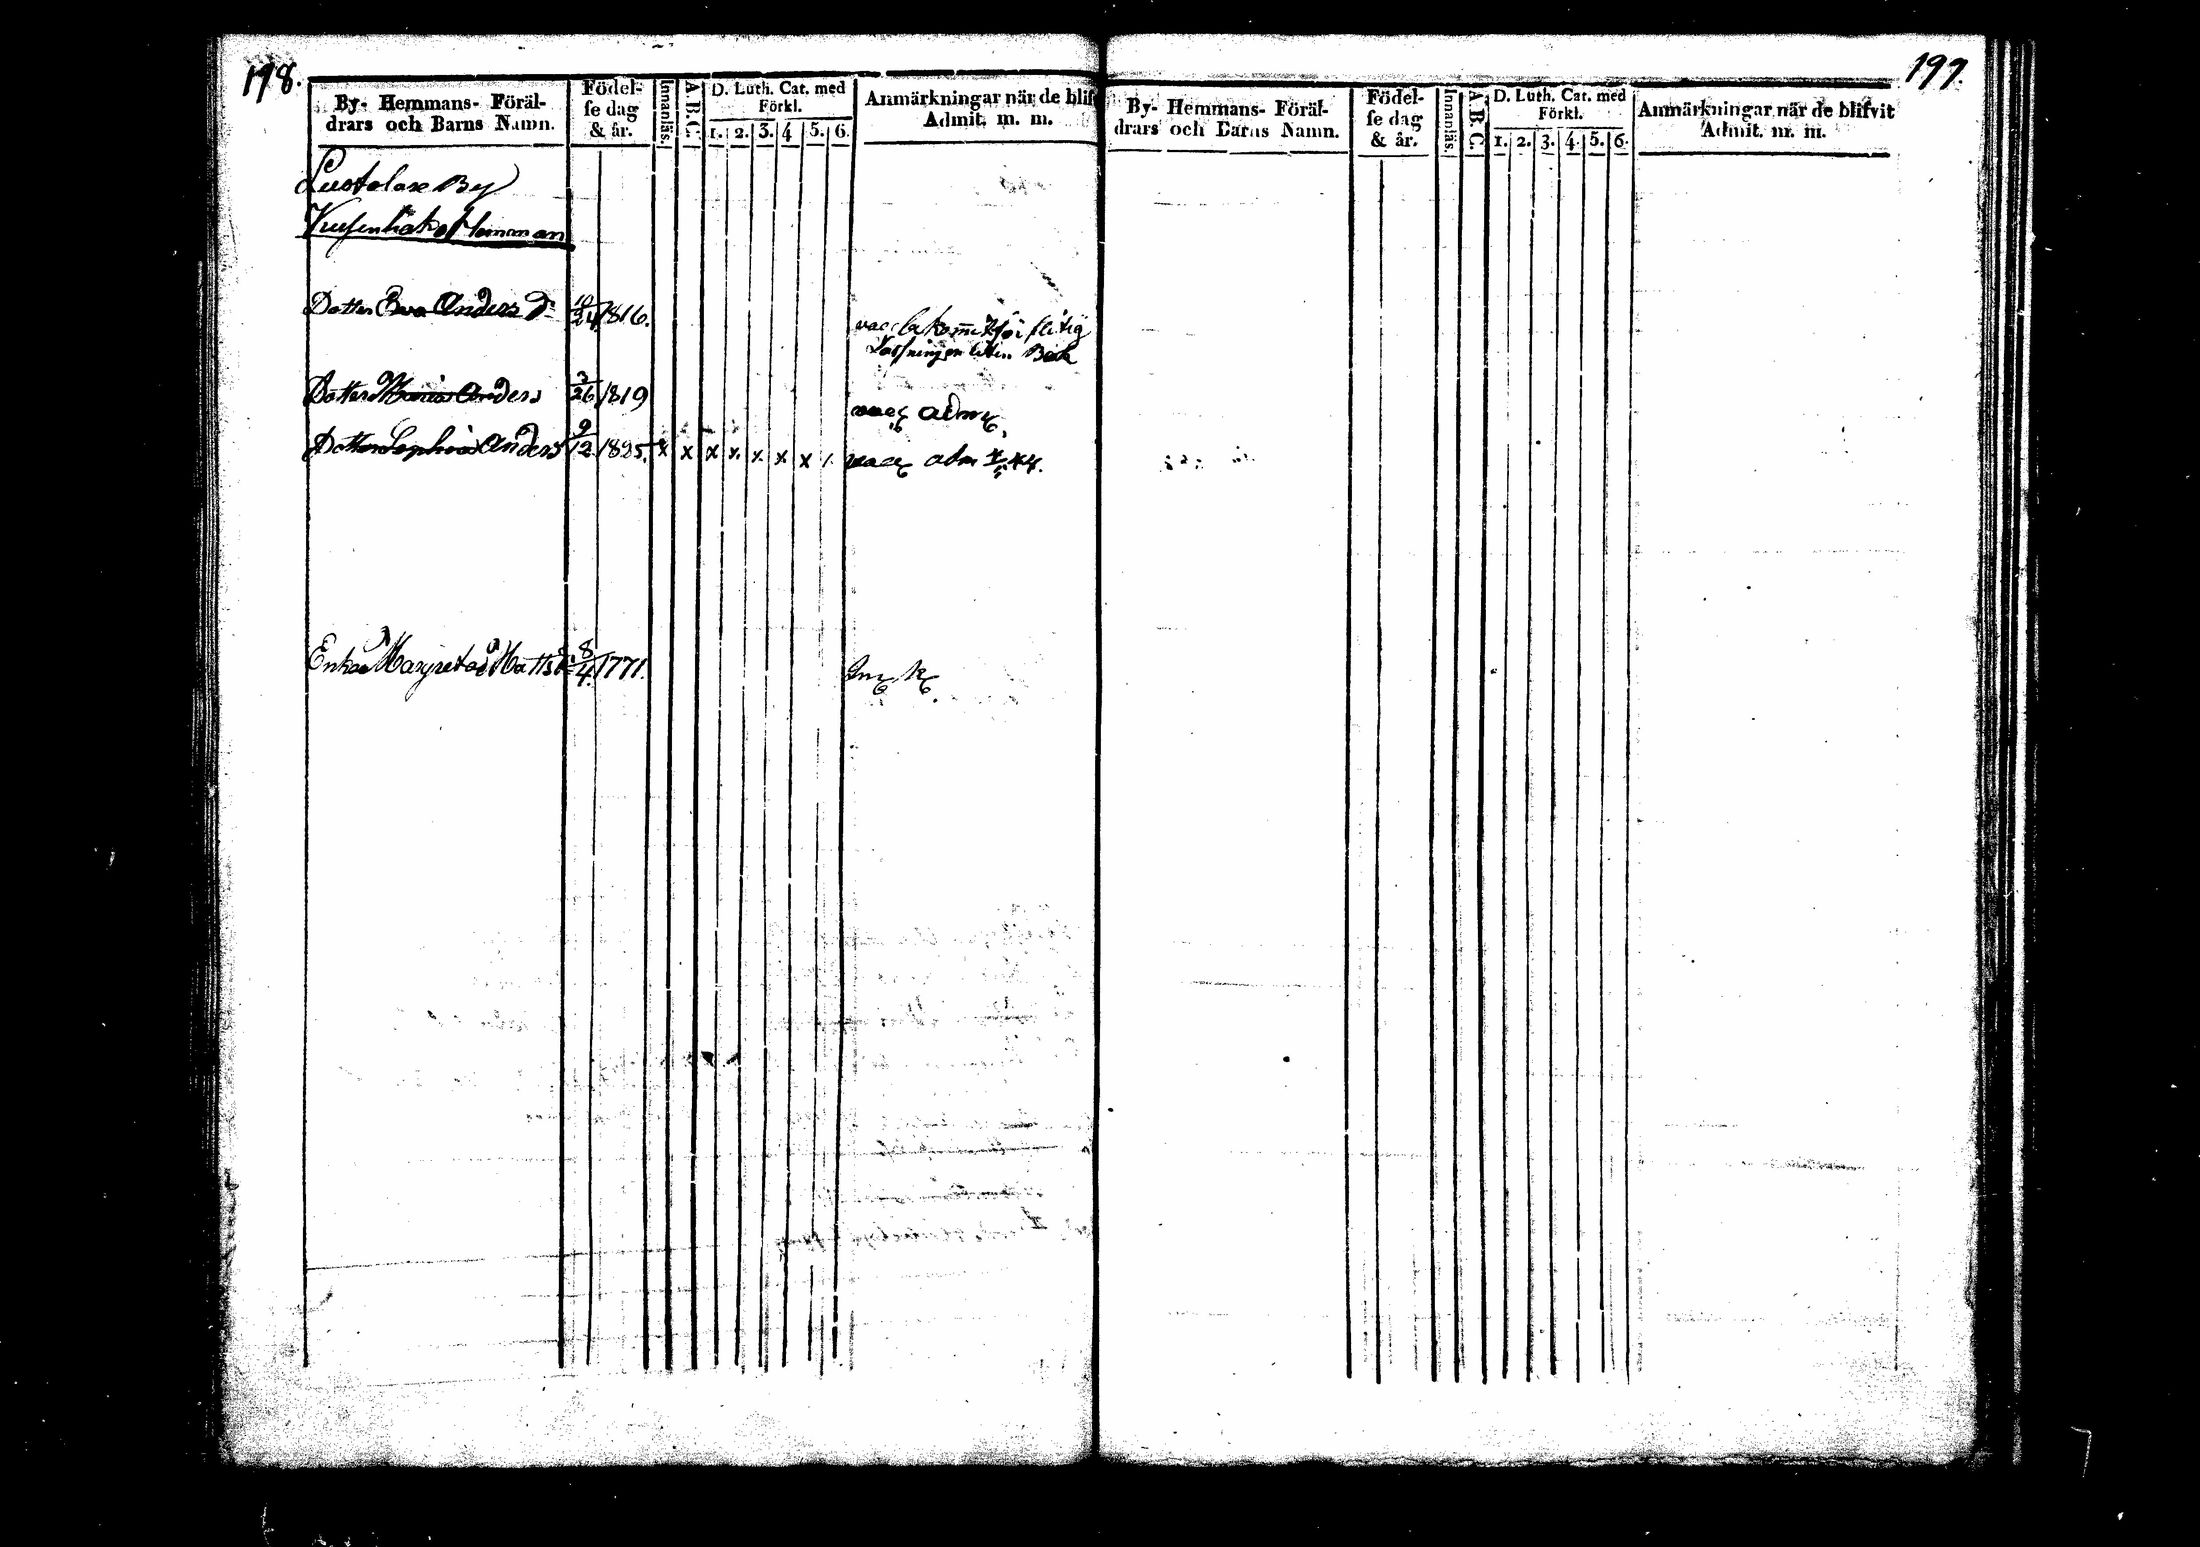 198.
By- Hemmans- Föräl-
drars och Barns Namn.
Födel-
se dag
& år.
Innanläs.
A.B.C.
D. Luth. Cat. med
Förkl.
1. 2. 3. 4 5. 6.
Anmärkningar när de blif
Admit. m. m.
By
Hemman
Dotter Eva Anders Dr 10/24 1816.
vacc
Läsningen Bok
Dotter Maria Anders 3/26 1819
vacc adm
Dotter Sophia Anders 9/12 1825. x x x x. x. x x /. vacc adm 44.
Enkan Margreta Matts Dr 8/4. 1771.
199.
By- Hemmans- Föräl-
drars och Barns Namn.
Födel-
se dag
& år.
Innanläs.
A.B.C.
D. Luth. Cat. med
Förkl.
1. 2. 3. 4. 5. 6.
Anmärkningar när de blifvit
Admit. m. m.